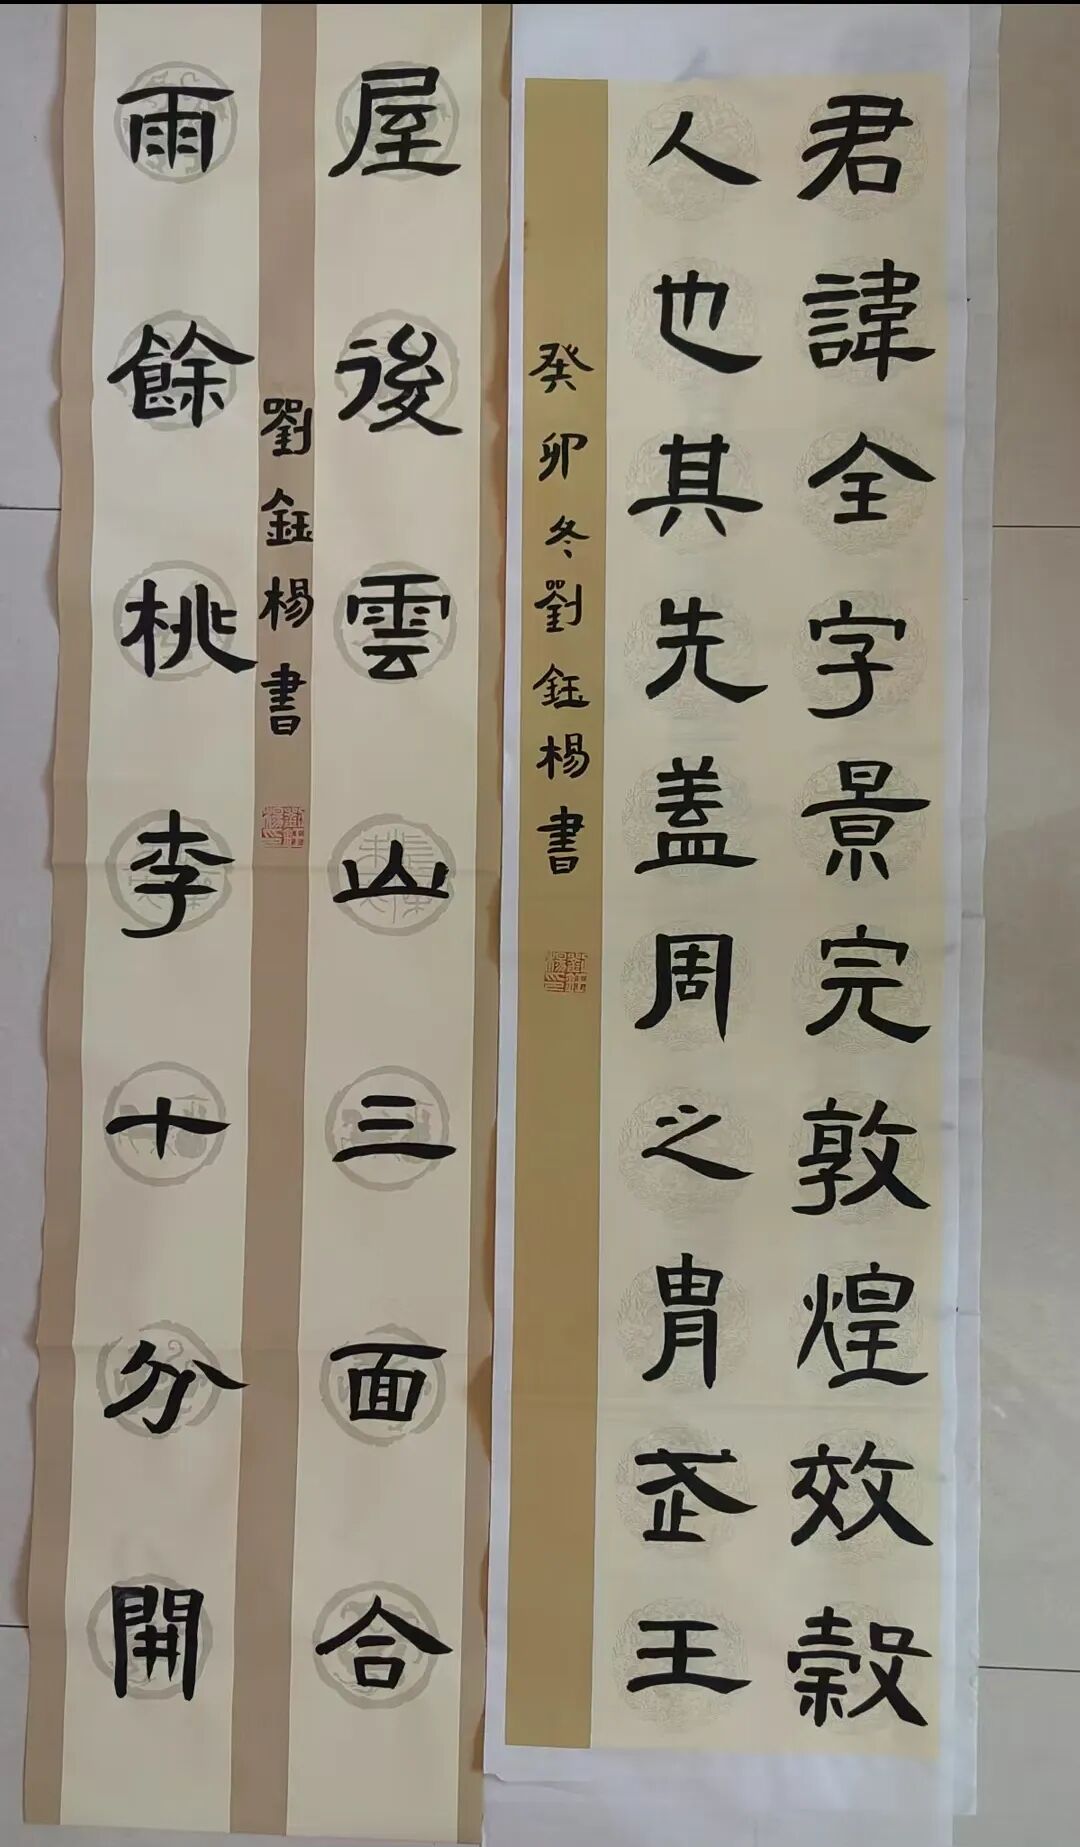 君諱全字景完敦煌效穀
人也其先蓋周之胄武王
癸卯冬劉鈺楊書
屋後雲山三面合
雨餘桃李十分開
劉鈺楊書